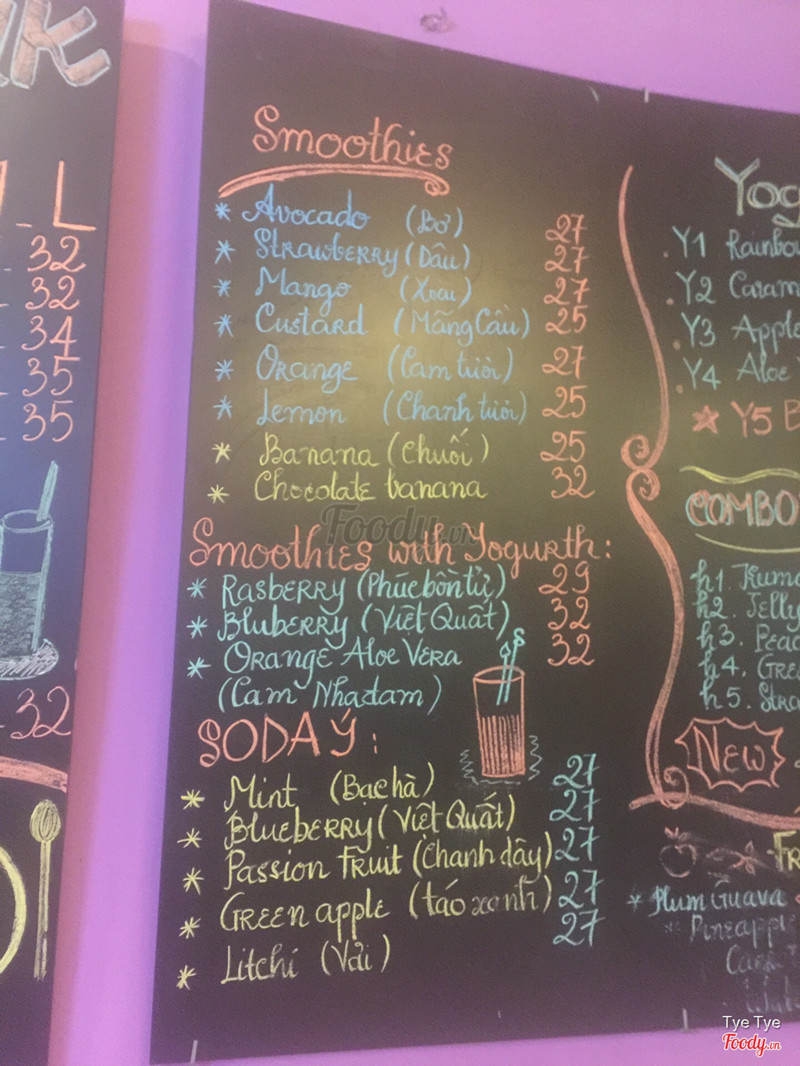 L
32
32
34
35
35
32
Smoothies
* Avocado (Bơ) 27
* Strawberry (Dâu) 27
* Mango (Xoài) 27
* Custard (Mãng Cầu) 25
* Orange (Cam tươi) 27
* Lemon (Chanh tươi) 25
* Banana (Chuối) 25
* Chocolate banana 32
Smoothies with Yogurth:
* Rasberry (Phúc bồn tử) 29
* Bluberry (Việt Quất) 32
* Orange Aloe Vera 32
(Cam Nha đam)
SODA Ý:
* Mint (Bạc hà) 27
* Blueberry (Việt Quất) 27
* Passion fruit (Chanh dây) 27
* Green apple (táo xanh) 27
* Litchi (Vải) 27
Yog
Y1 Rainbo
Y2 Caram
Y3 Apple
Y4 Aloe
Y5 B
COMBO
h1. Kuma
h2. Jelly
h3. Peac
h4. Gree
h5. Stra
New
Fr
* Plum Guava
* Pineapple
Foody.vn
Tye Tye
Foody.vn